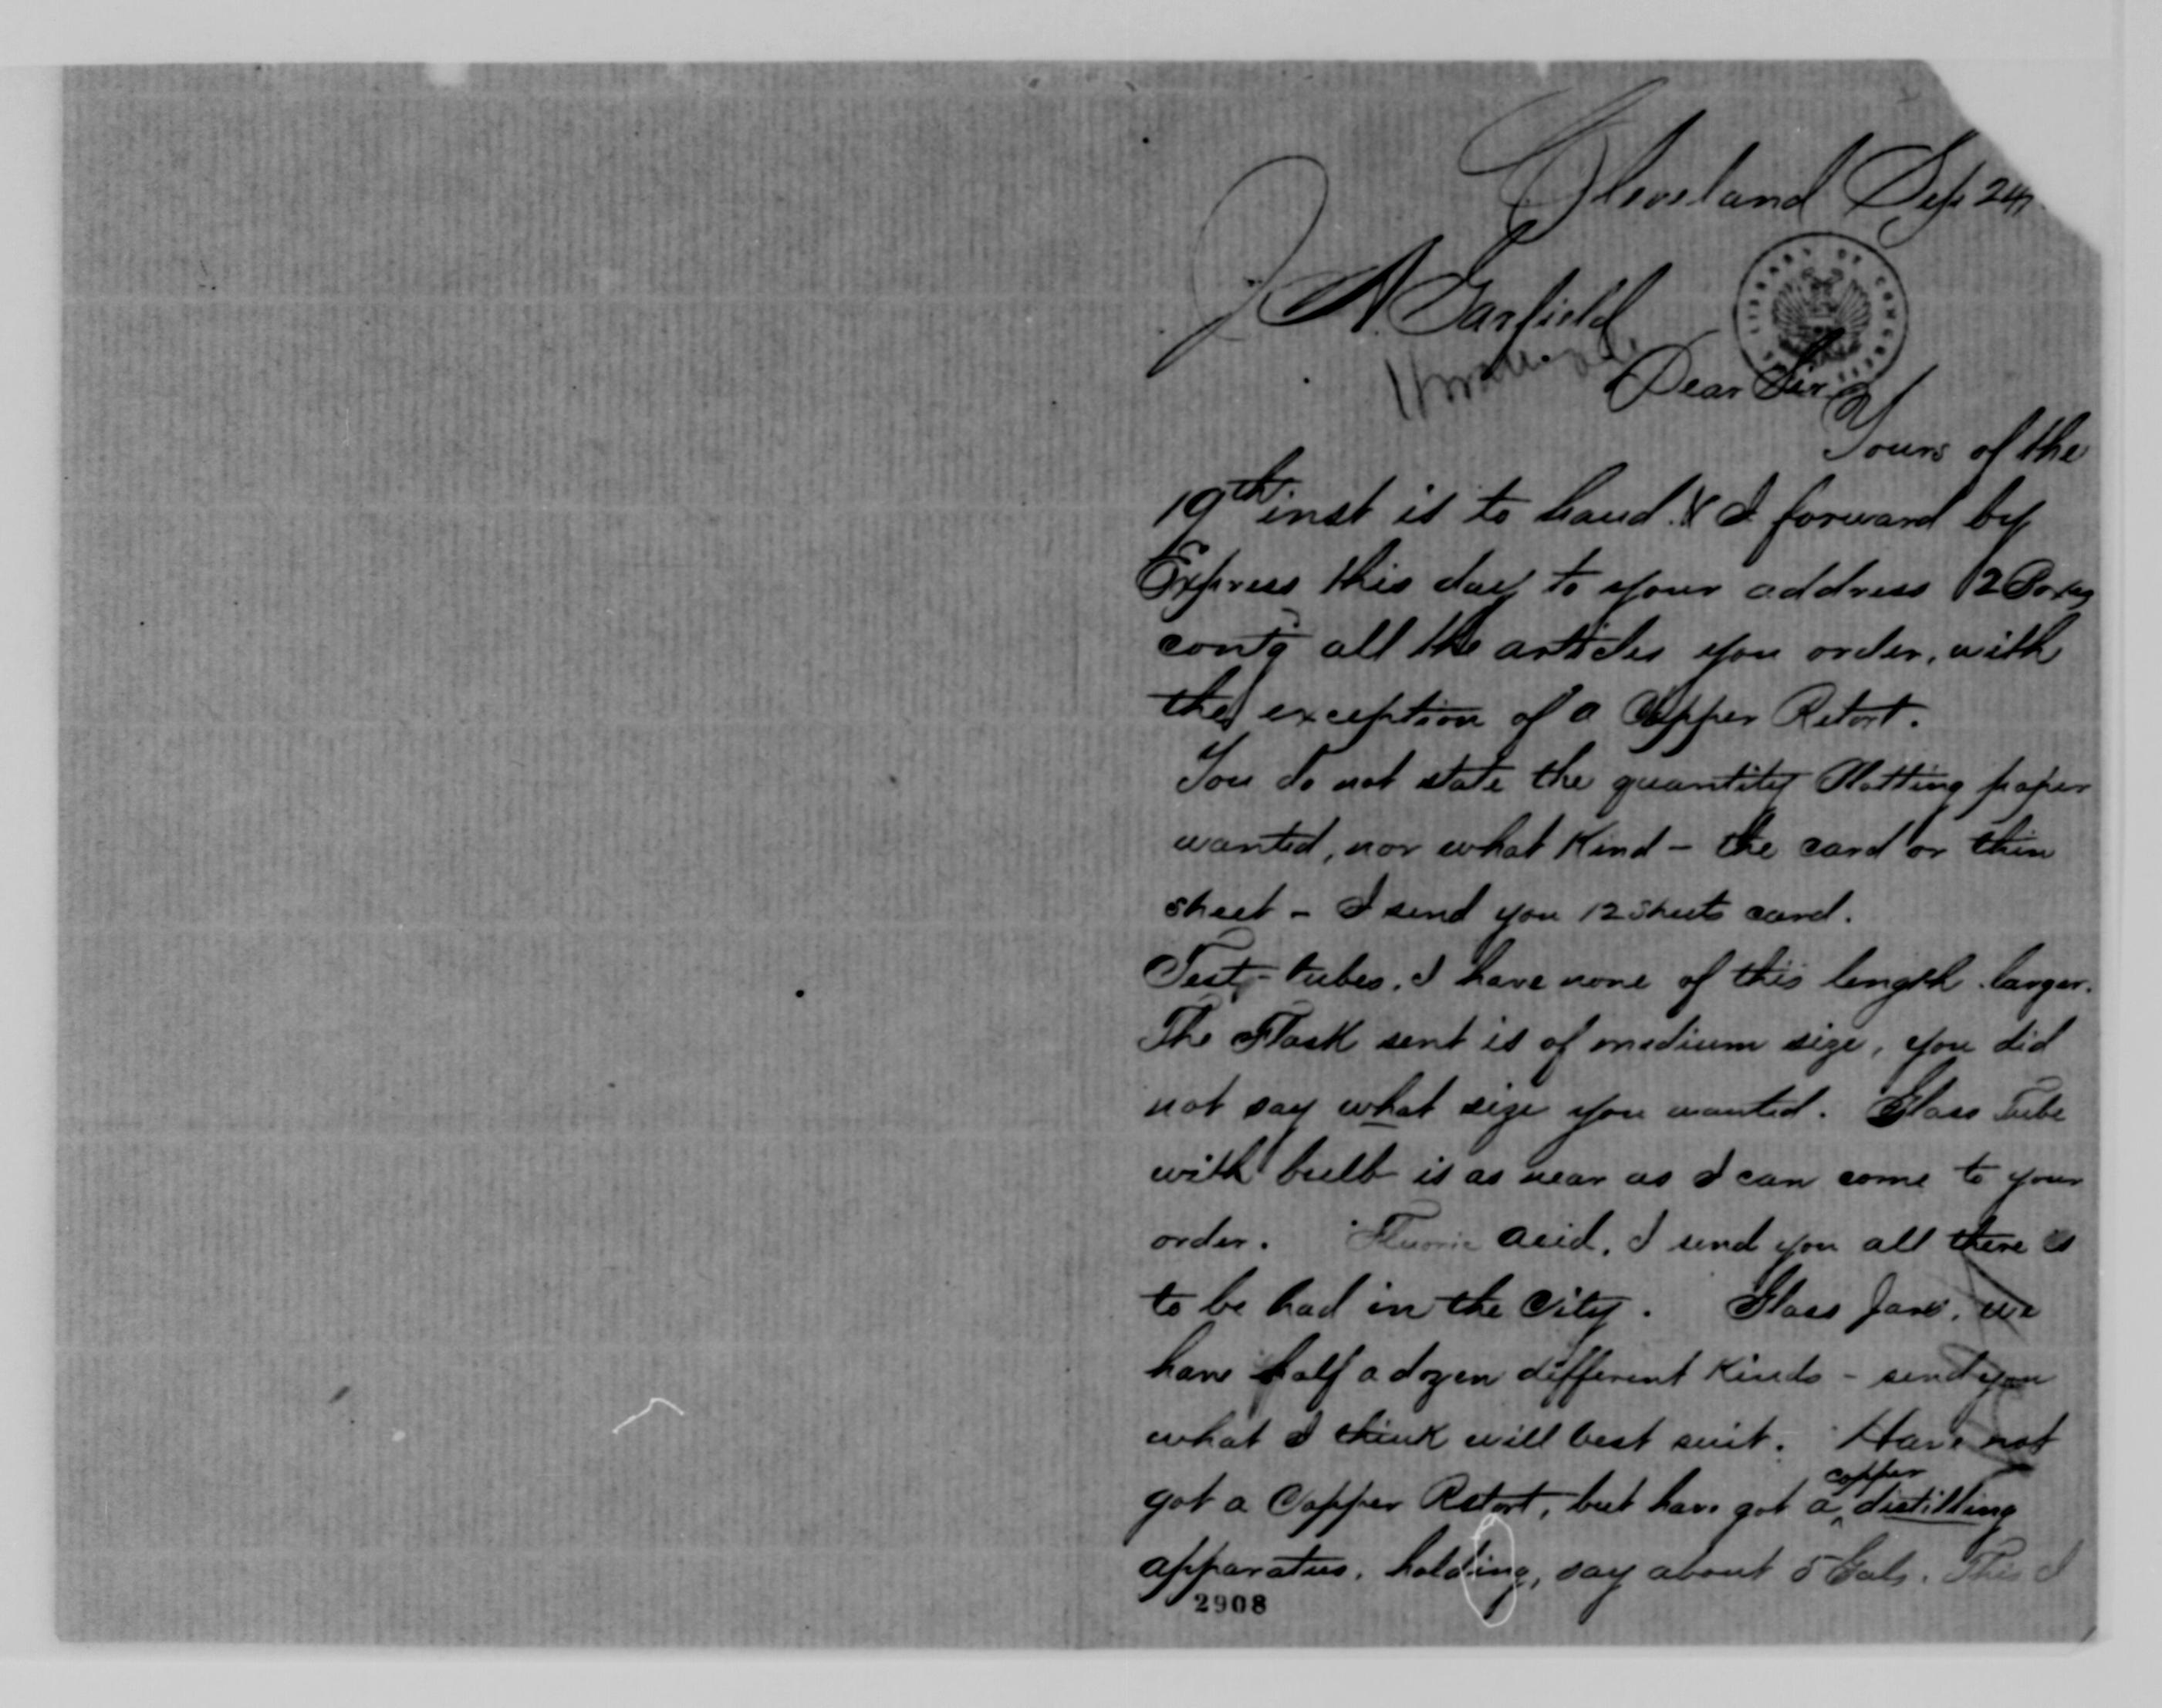 Cleveland Sep 24
J A. Garfield
LIBRARY OF CONGRESS
Dear Sir
Yours of the
19th inst is to hand. & I forward by
Express this day to your address 2 Boxes
contg all the articles you order, with
the exception of a Copper Retort.
You do not state the quantity Blotting paper
wanted, nor what Kind - the card or thin
sheet - I send you 12 Sheets card.
Test-tubes. I have none of this length larger.
The Flask sent is of medium size, you did
not say what size you wanted. Glass Tube
with bulb is as near as I can come to your
order. Fluoric acid. I send you all there is
to be had in the City. Glass Jars. we
have half a dozen different Kinds - send you
what I think will best suit. Have not
copper
got a Copper Retort, but have got a ^ distilling
apparatus. holding, say about 5 Gals. This I
2908